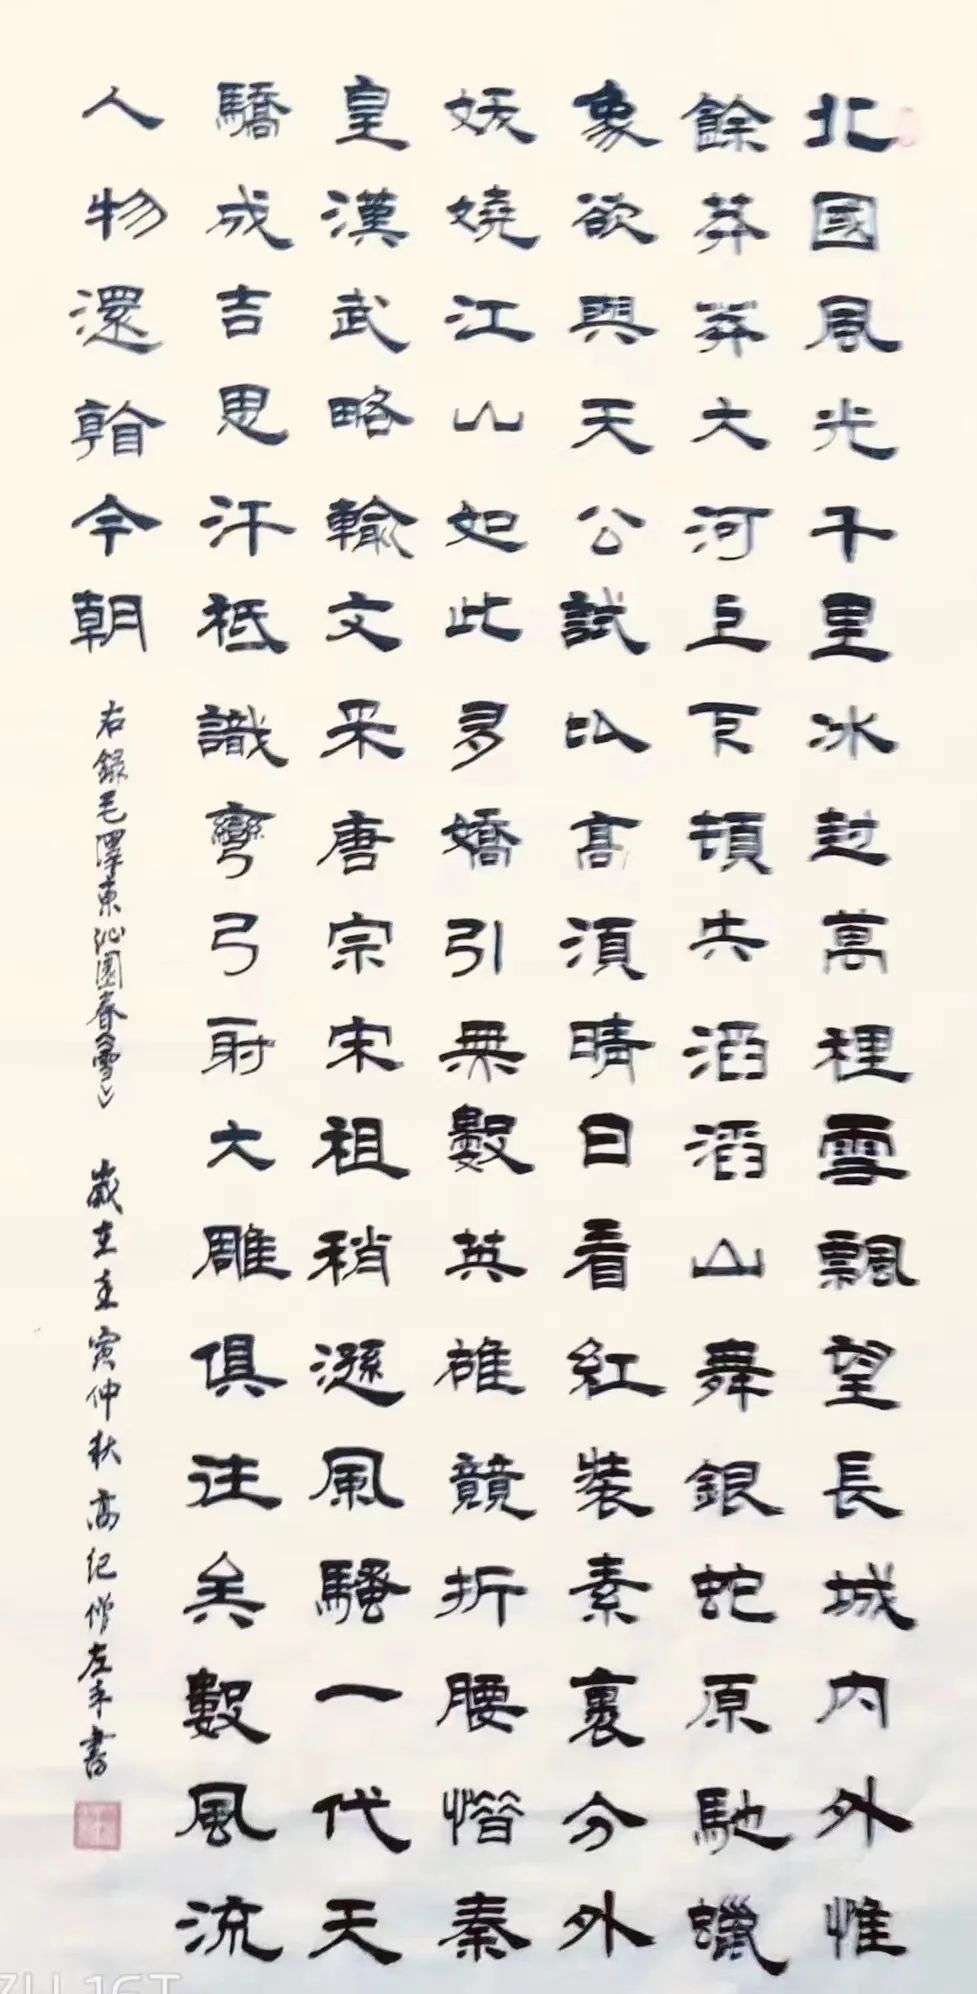 北國風光千里冰封萬裡雪飄望長城内外惟
餘莽莽大河上下頓失滔滔山舞銀蛇原馳蠟
象欲與天公試比高須晴日看紅裝素裹分外
妖嬈江山如此多嬌引無數英雄競折腰惜秦
皇漢武略輸文采唐宗宋祖稍遜風騷一代天
驕成吉思汗祗識彎弓射大雕俱往矣數風流
人物還看今朝
右錄毛澤東沁園春《雪》 歲在壬寅仲秋高纪僧左手書